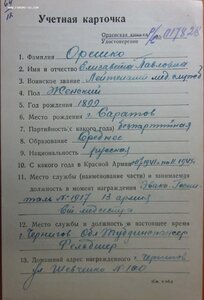 Учетная карточка
Орденская книжка
Удостоверение
017828
1. Фамилия Орешко
2. Имя и отчество Елизавета Павловна
3. Воинское звание Лейтенант мед службы
4. Пол Женский
5. Год рождения 1899
6. Место рождения г. Саратов
7. Партийность (с какого года) беспартийная
8. Образование Среднее
9. Национальность русская
10. С какого года в Красной Армии
11. Место службы (наименование части) и занимаемая
должность в момент награждения Эвако Госпи
таль №1917 13 армия
Ст. медсестра
12. Место службы и должность в настоящее время
г. Чернигов Обл
Фельдшер
13. Домашний адрес награжденного г. Чернигов
ул. Шевченко №100